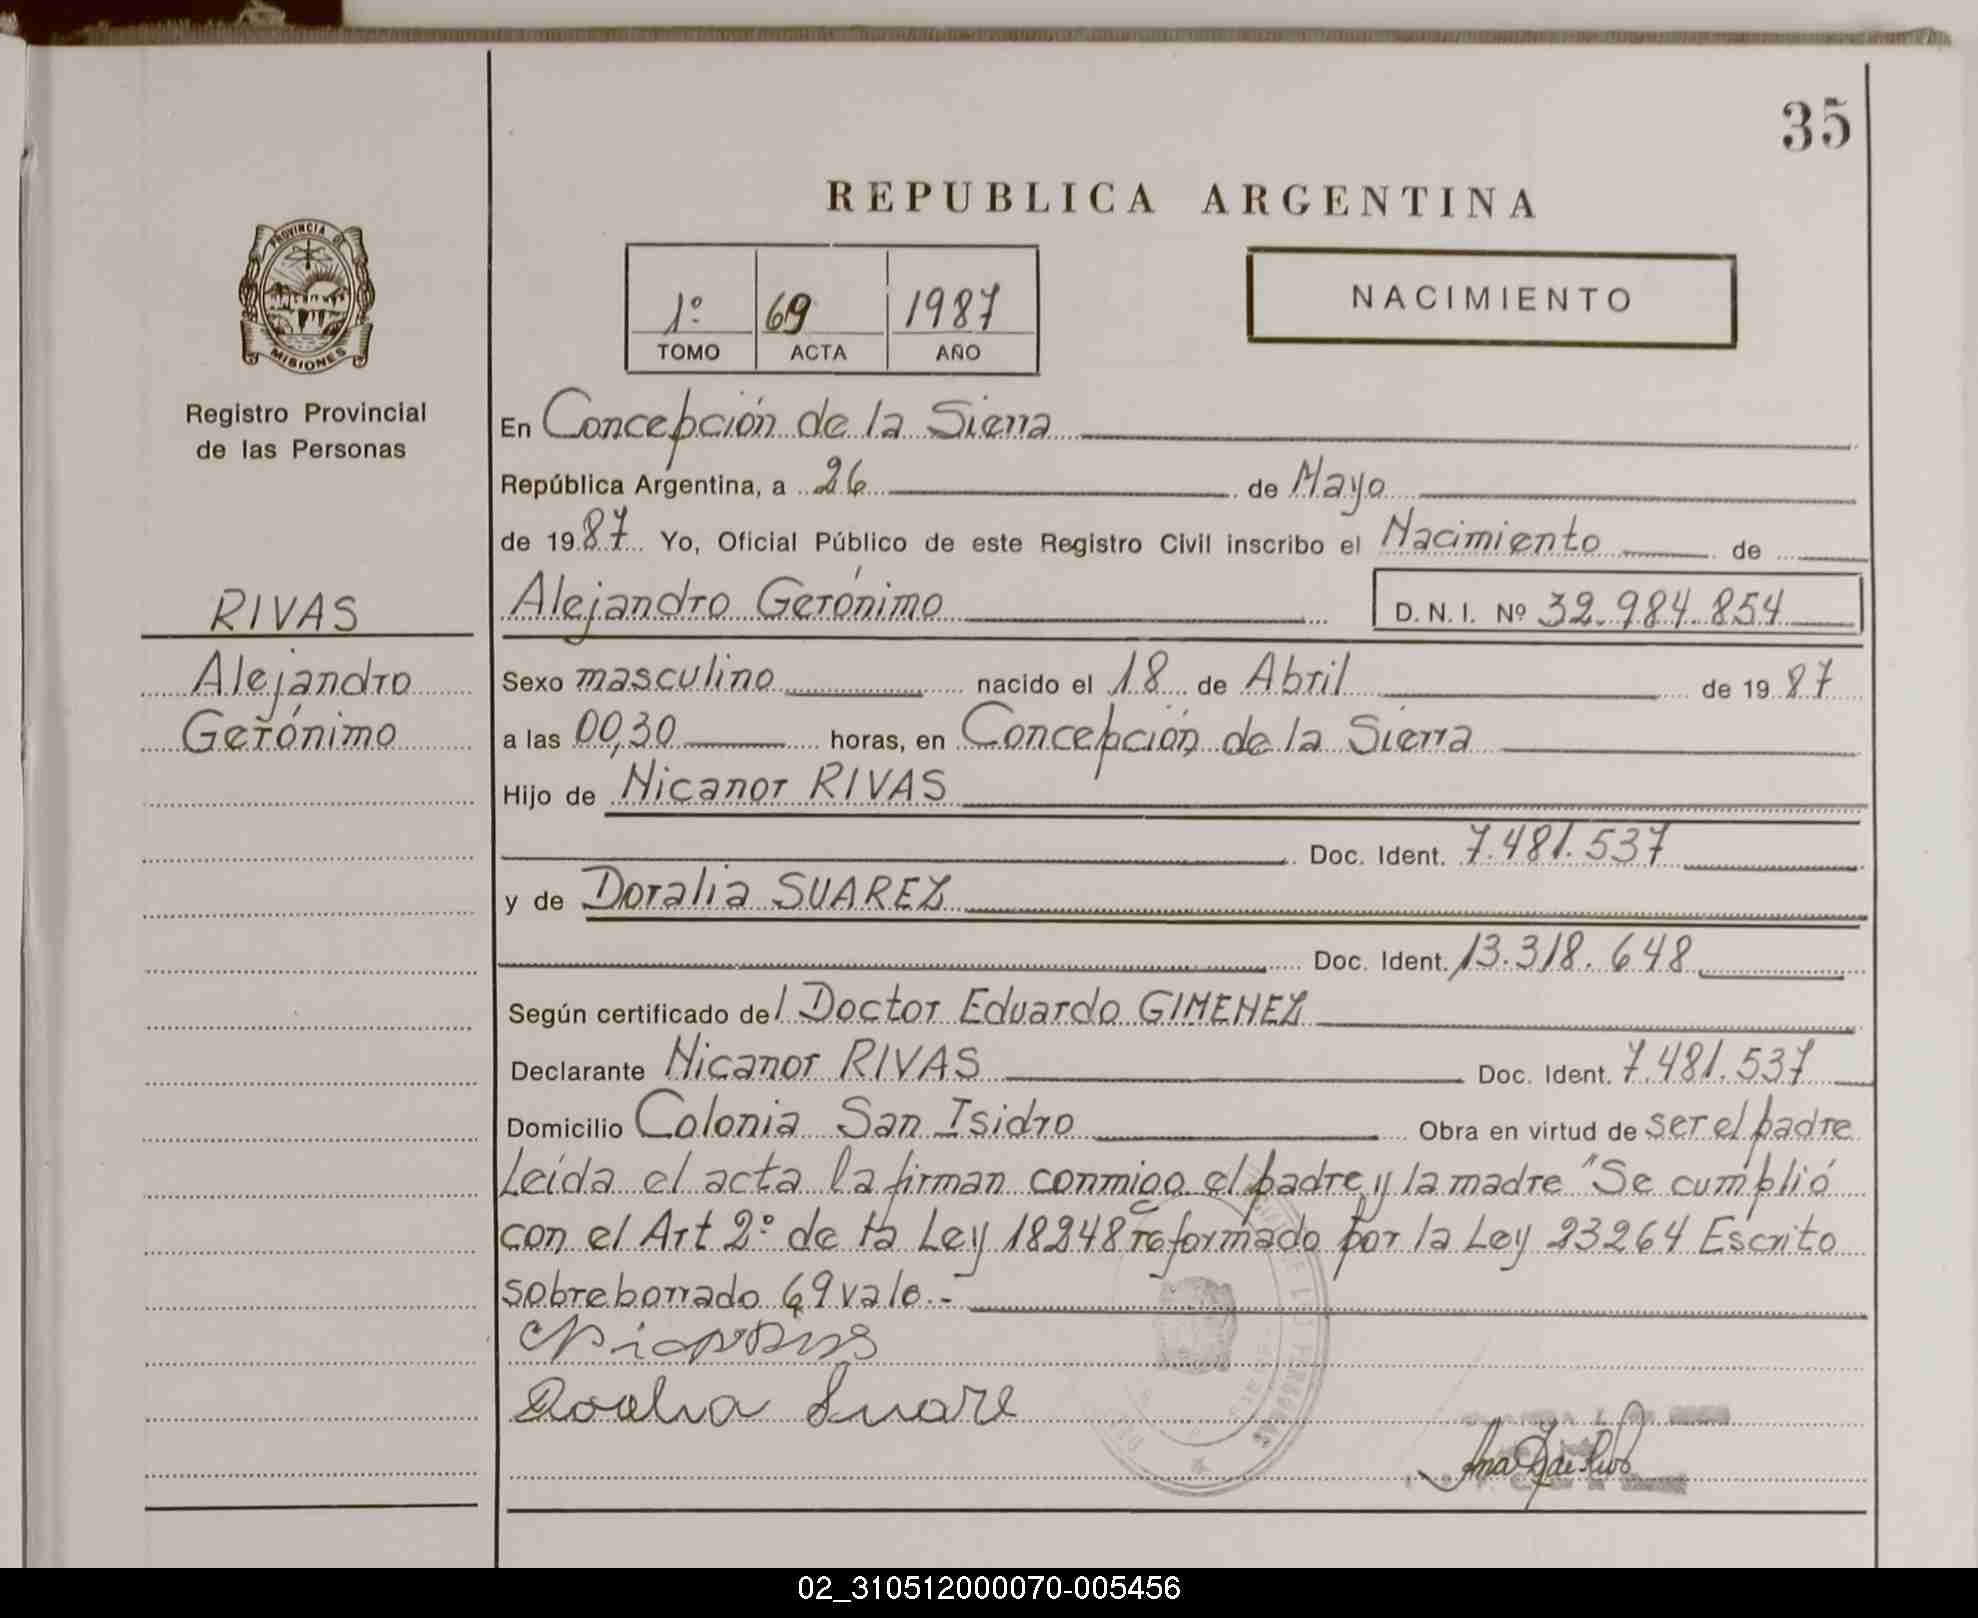 35
REPUBLICA ARGENTINA
PROVINCIA DE
MISIONES
Registro Provincial
de las Personas
1º 69 1987
TOMO ACTA AÑO
NACIMIENTO
En Concepción de la Sierra
República Argentina, a 26 de Mayo
de 1987 Yo, Oficial Público de este Registro Civil inscribo el Nacimiento de
RIVAS
Alejandro Gerónimo D.N.I. Nº 32.984.854
Alejandro
Sexo masculino nacido el 18 de Abril de 1987
Gerónimo
a las 00,30 horas, en Concepción de la Sierra
Hijo de Nicanor RIVAS
Doc. Ident. 7.481.537
y de Doralia SUAREZ
Doc. Ident. 13.318.648
Según certificado del Doctor Eduardo GIMENEZ
Declarante Nicanor RIVAS Doc. Ident. 7.481.537
Domicilio Colonia San Isidro Obra en virtud de ser el padre
Leída el acta la firman conmigo el padre y la madre "Se cumplió
con el Art 2º de la Ley 18248 reformado por la Ley 23264 Escrito
sobreborrado 69 vale.-
Suare
02_310512000070-005456